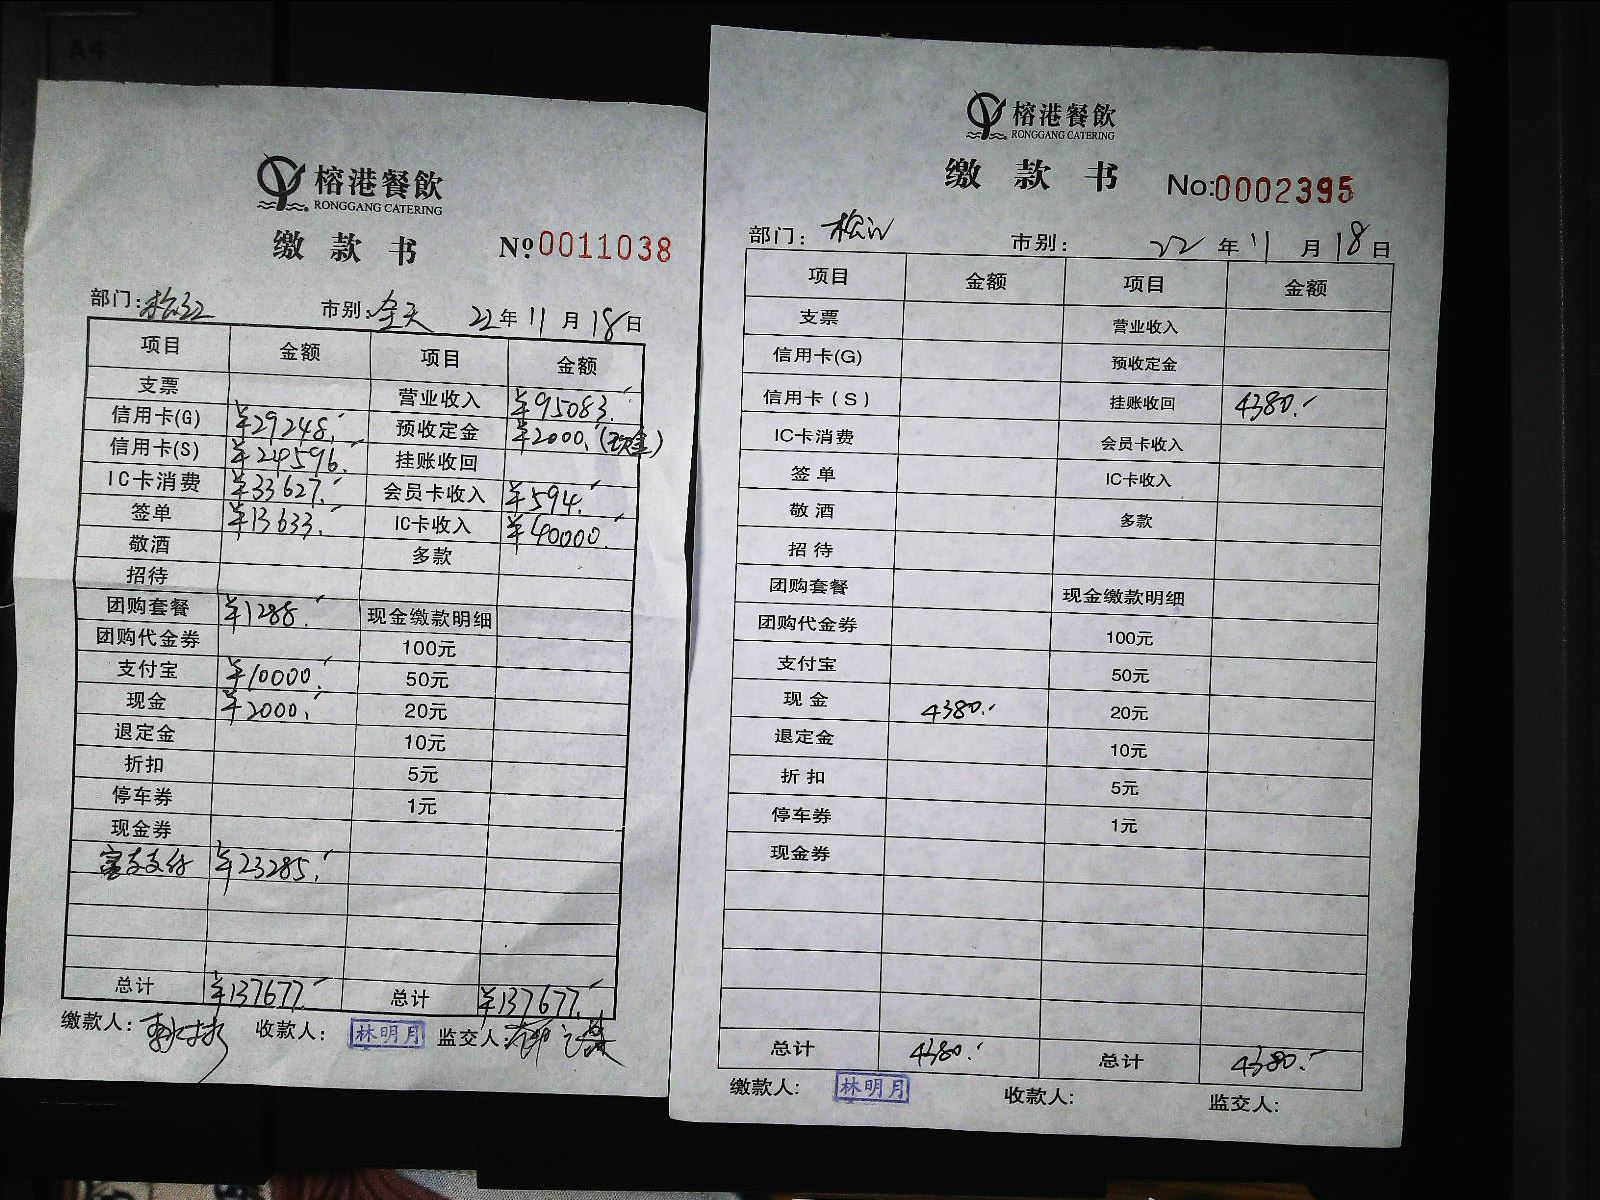 A4
榕港餐飲
RONGGANG CATERING
缴款书 №0011038
部门:松江 市别:全天 22年11月18日
项目 金额 项目 金额
支票 营业收入 ¥95083.
信用卡(G) ¥29248. 预收定金 ¥2000.(现金)
信用卡(S) ¥24596. 挂账收回
IC卡消费 ¥33627. 会员卡收入 ¥594.
签单 ¥13633. IC卡收入 ¥40000.
敬酒 多款
招待
团购套餐 ¥1288. 现金缴款明细
团购代金券 100元
支付宝 ¥10000. 50元
现金 ¥2000. 20元
退定金 10元
折扣 5元
停车券 1元
现金券
支付 ¥23285.
总计 ¥137677. 总计 ¥137677.
缴款人: 收款人: 林明月 监交人:
榕港餐飲
RONGGANG CATERING
缴款书 No:0002395
部门: 松江 市别: 22年11月18日
项目 金额 项目 金额
支票 营业收入
信用卡(G) 预收定金
信用卡(S) 挂账收回 4380.
IC卡消费 会员卡收入
签单 IC卡收入
敬酒 多款
招待
团购套餐 现金缴款明细
团购代金券 100元
支付宝 50元
现金 4380. 20元
退定金 10元
折扣 5元
停车券 1元
现金券
总计 4380. 总计 4380.
缴款人: 林明月 收款人: 监交人: